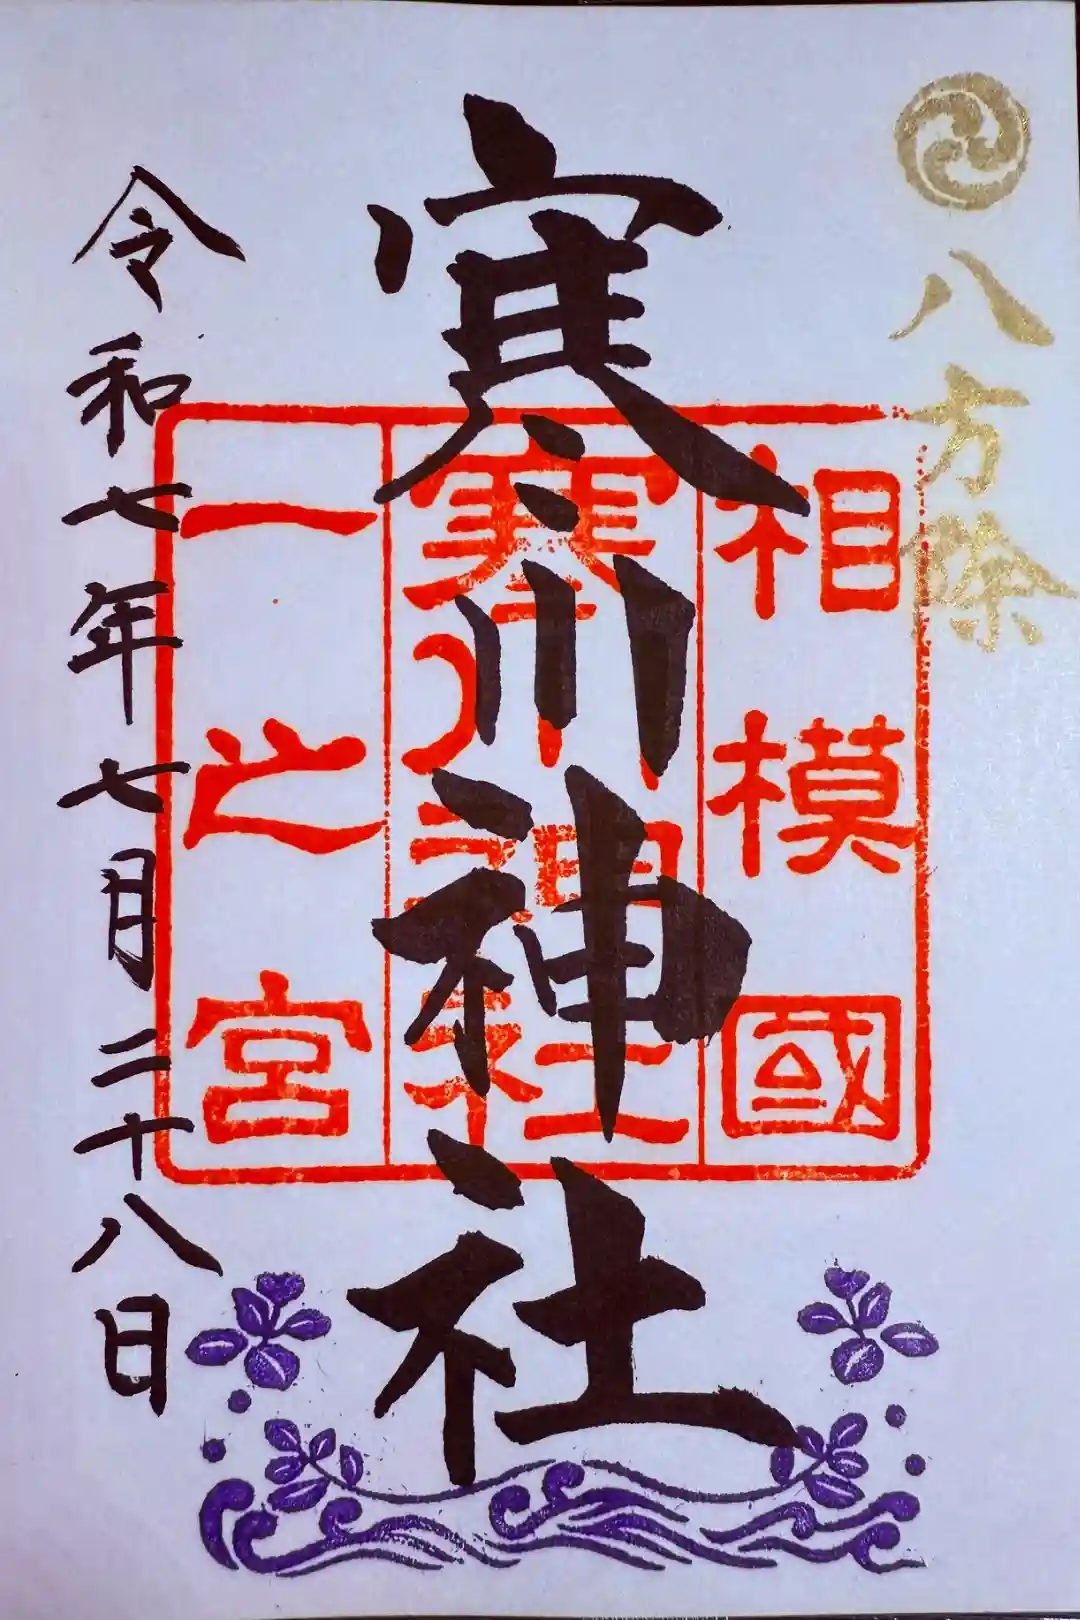 八方除
寒川神社
相模國
寒川神社
一之宮
令和七年七月二十八日